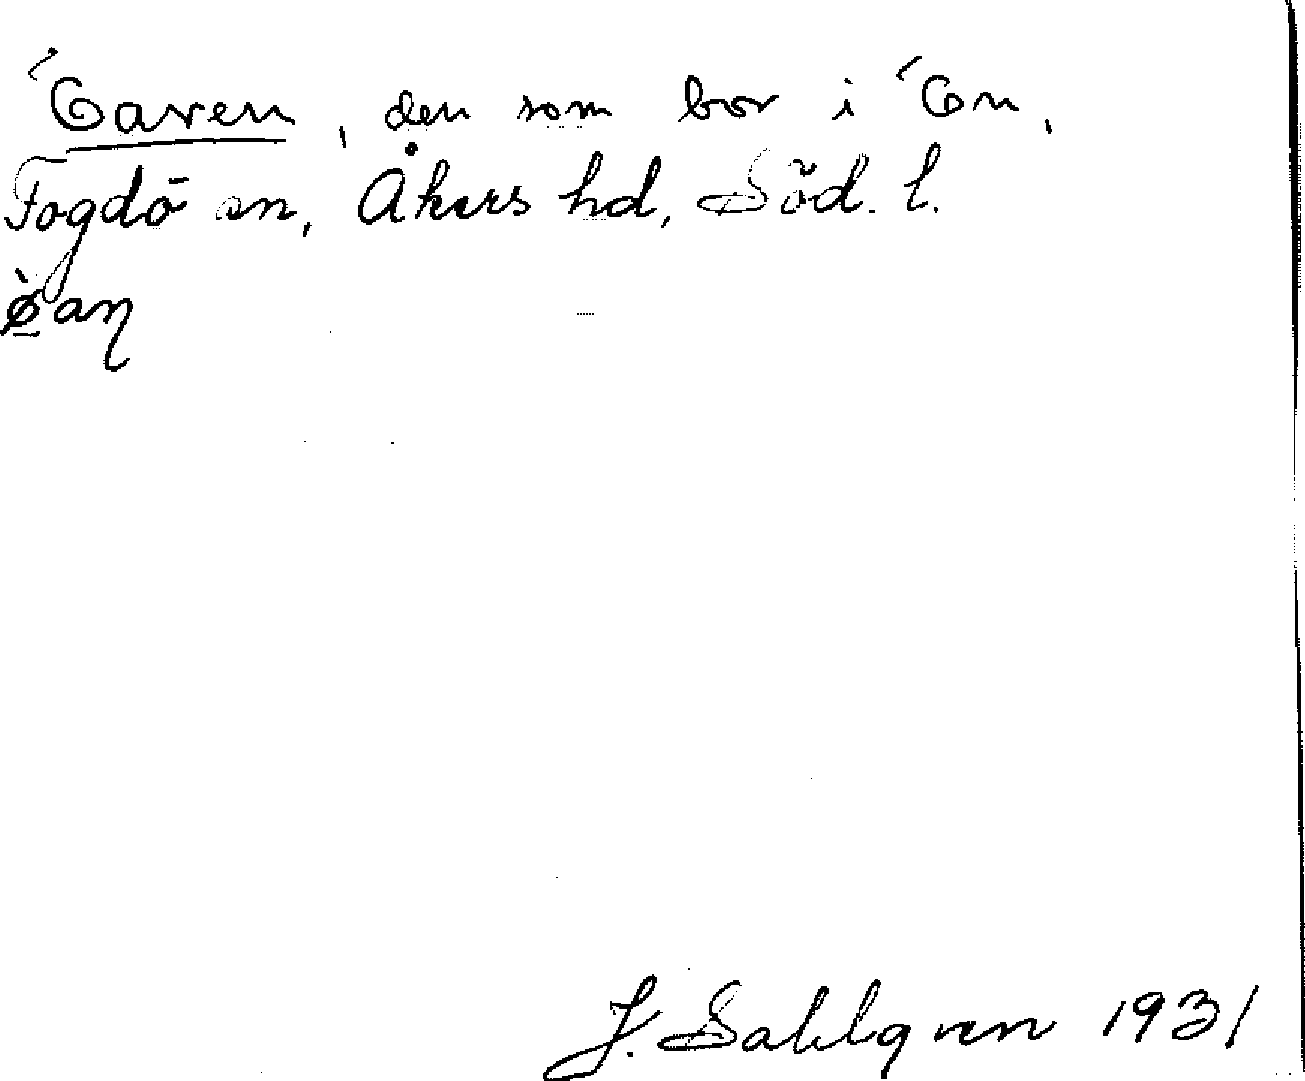 Öaren, den som bor i Ön,
Fogdö sn, Åkers hd, Söd. l.
J. Sahlgren 1931